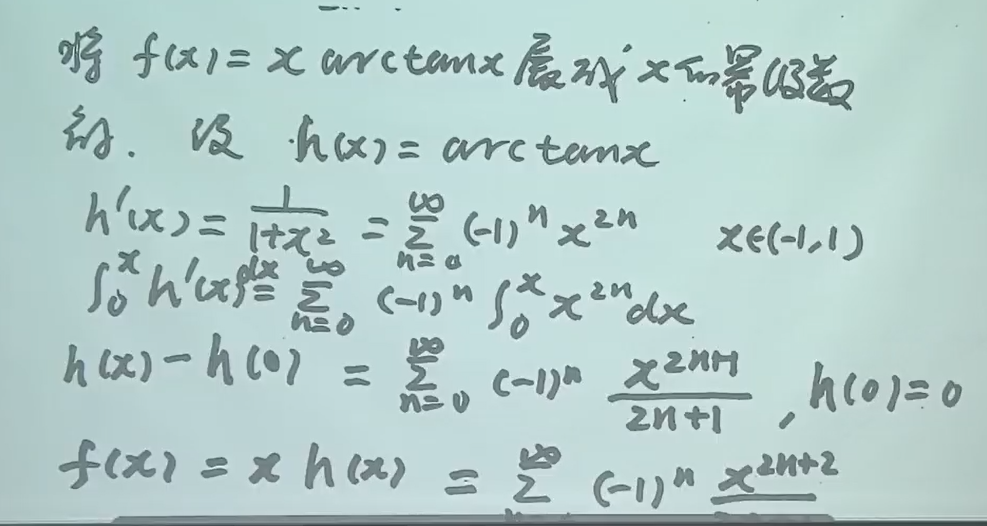 将 f(x) = x arctanx 展成 x 的幂级数
解. 设 h(x) = arctanx
h'(x) = \frac{1}{1+x^2} = \sum_{n=0}^{\infty} (-1)^n x^{2n} x∈(-1,1)
\int_0^x h'(x)dx = \sum_{n=0}^{\infty} (-1)^n \int_0^x x^{2n}dx
h(x) - h(0) = \sum_{n=0}^{\infty} (-1)^n \frac{x^{2n+1}}{2n+1} , h(0)=0
f(x) = x h(x) = \sum^{\infty} (-1)^n x^{2n+2}